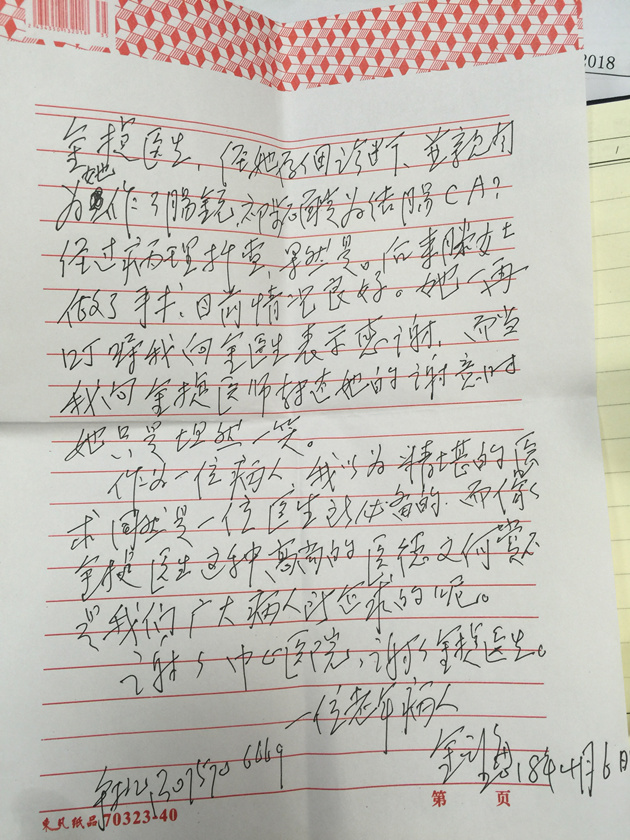 2018
金提医生,经她仔细诊断下,并亲自
为她作了肠镜,初步诊断为结肠CA?
经过病理检查,果然是。后来滕女士
做了手术,目前情况良好。她一再
叮嘱我向金医生表示感谢,而当
我向金提医师转达她的谢意时
她只是坦然一笑。
作为一位病人,我以为精堪的医
术固然是一位医生所必备的,而像
金提医生这种高尚的医德又何尝不
是我们广大病人所企求的呢。
谢谢中心医院,谢谢金提医生。
一位老年病人
184月6日
6669
第 页
纸品70323-40